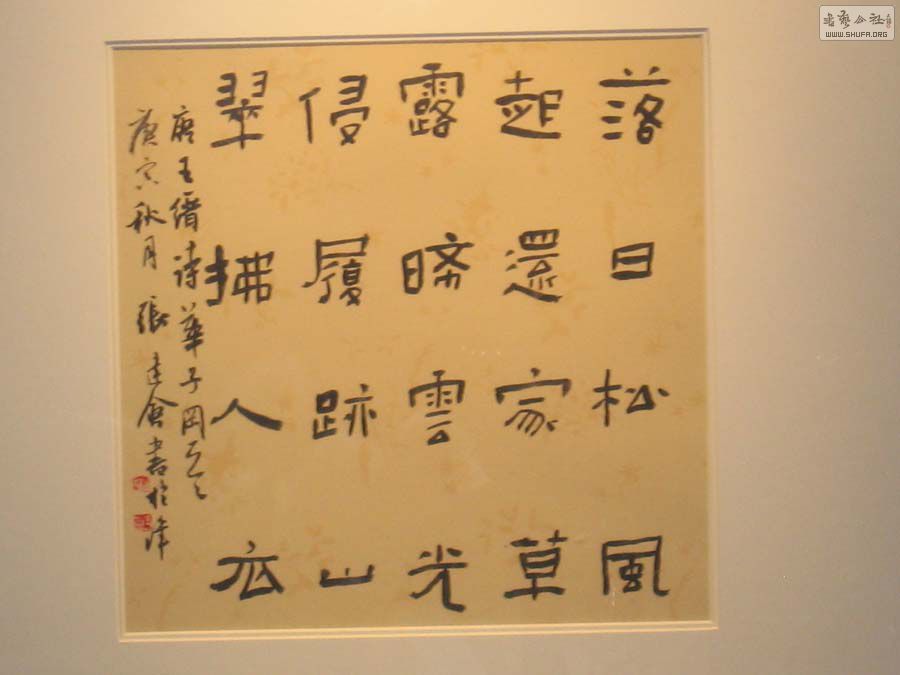 落日松風
起還家草
露晞雲光
侵履跡山
翠拂人衣
唐王縉詩華子岡
庚寅秋月張建會書於津
書藝公社
WWW.SHUFA.ORG